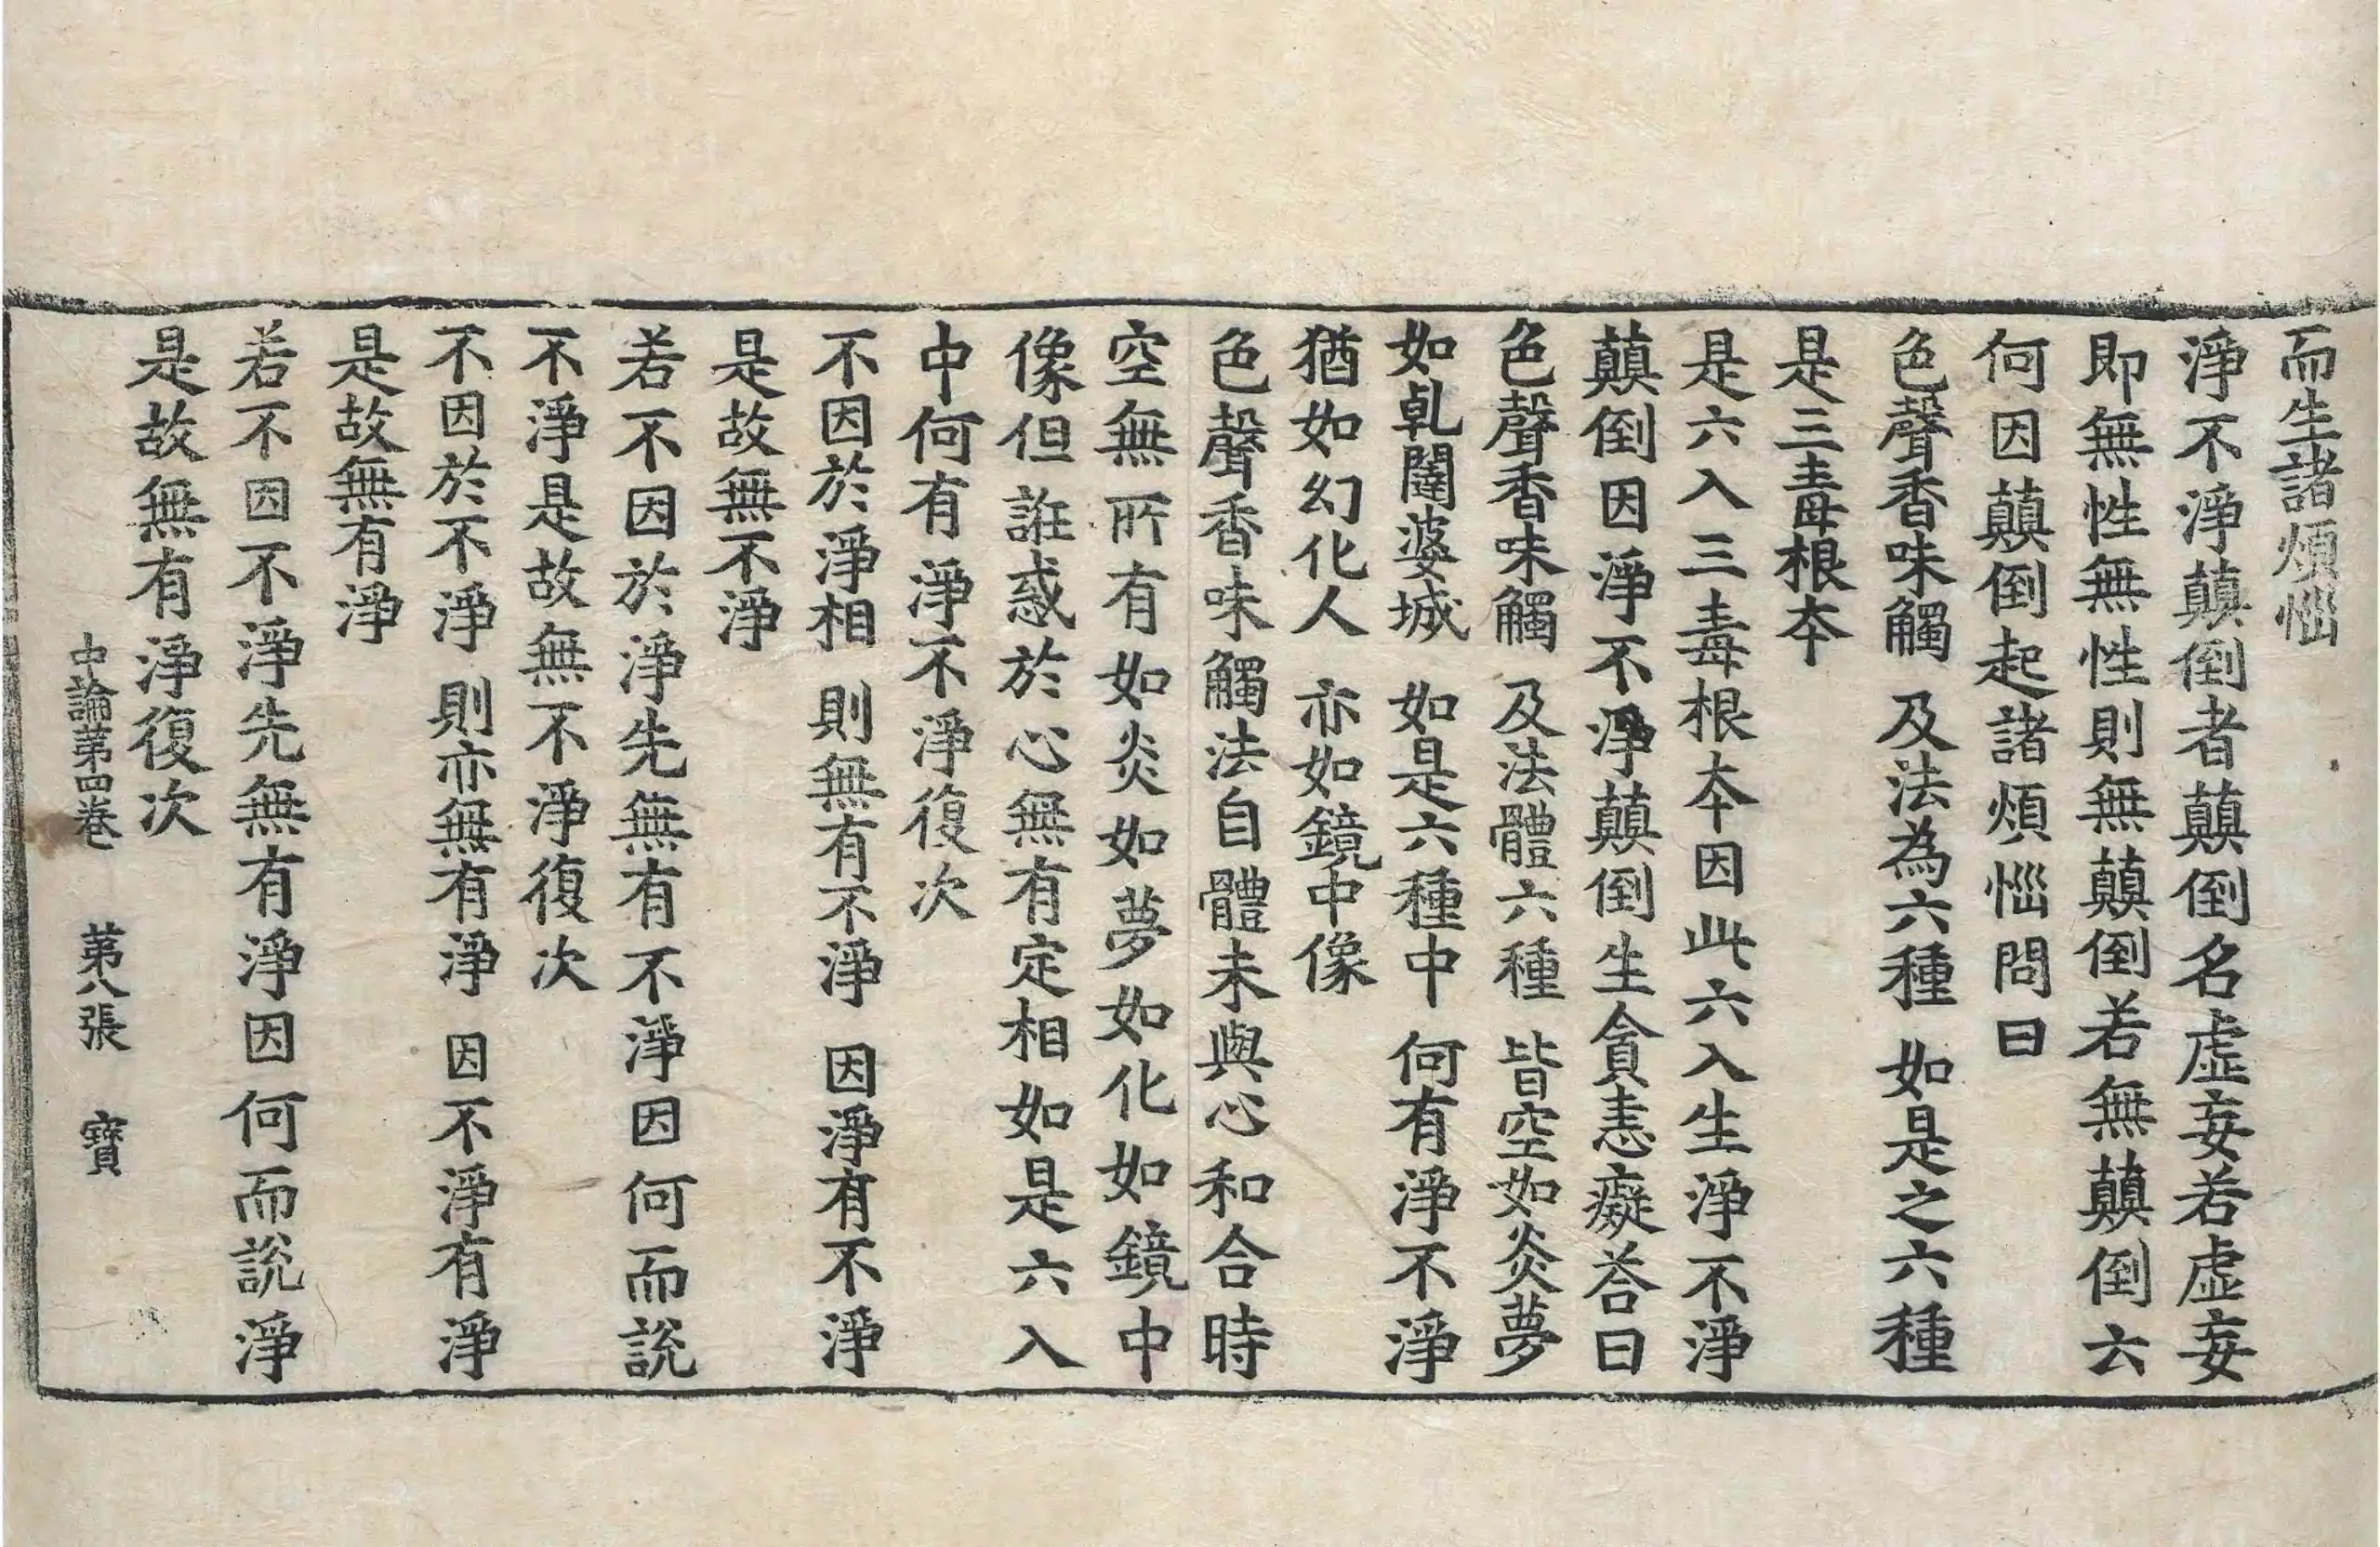 而生諸煩惱
淨不淨顛倒者顛倒名虛妄若虛妄
即無性無性則無顛倒若無顛倒云
何因顛倒起諸煩惱問曰
色聲香味觸 及法為六種 如是之六種
是三毒根本
是六入三毒根本因此六入生淨不淨
顛倒因淨不淨顛倒生貪恚癡荅曰
色聲香味觸 及法體六種 皆空如炎夢
如乹闥婆城 如是六種中 何有淨不淨
猶如幻化人 亦如鏡中像
色聲香味觸法自體未與心和合時
空無所有如炎如夢如化如鏡中
像但誑惑於心無有定相如是六入
中何有淨不淨復次
不因於淨相 則無有不淨 因淨有不淨
是故無不淨
若不因於淨先無有不淨因何而說
不淨是故無不淨復次
不因於不淨 則亦無有淨 因不淨有淨
是故無有淨
若不因不淨先無有淨因何而說淨
是故無有淨復次
中論第四卷 第八張 寶